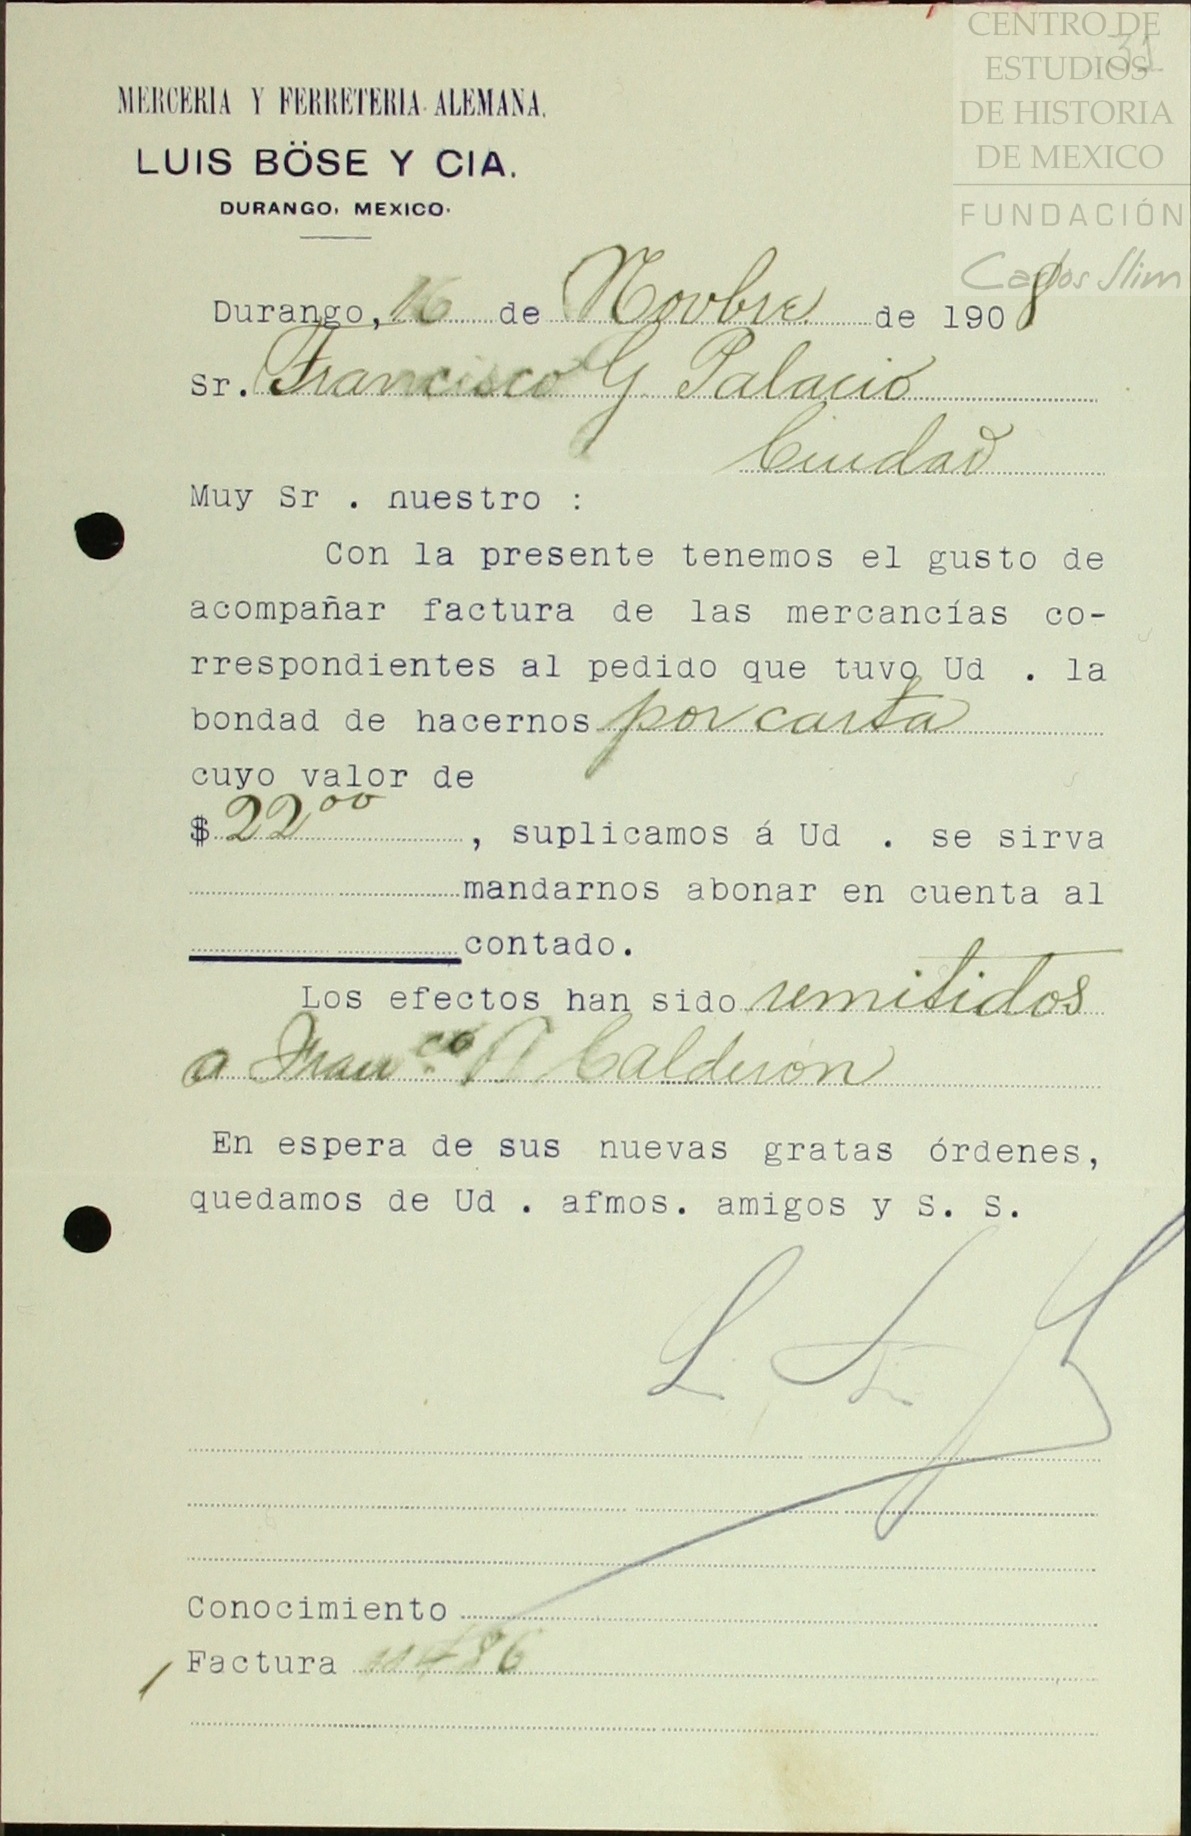 CENTRO DE
ESTUDIOS
DE HISTORIA
DE MEXICO
FUNDACIÓN
Carlos Slim
31
MERCERIA Y FERRETERIA ALEMANA.
LUIS BÖSE Y CIA.
DURANGO, MEXICO.
Durango, 16 de Novbre de 1908
Sr. Francisco G. Palacio
Ciudad
Muy Sr . nuestro :
Con la presente tenemos el gusto de
acompañar factura de las mercancías co-
rrespondientes al pedido que tuvo Ud . la
bondad de hacernos por carta
cuyo valor de
$ 22 00 , suplicamos á Ud . se sirva
mandarnos abonar en cuenta al
contado.
Los efectos han sido remitidos
a Franco. A Calderón
En espera de sus nuevas gratas órdenes,
quedamos de Ud . afmos. amigos y S. S.
Conocimiento
Factura 11486